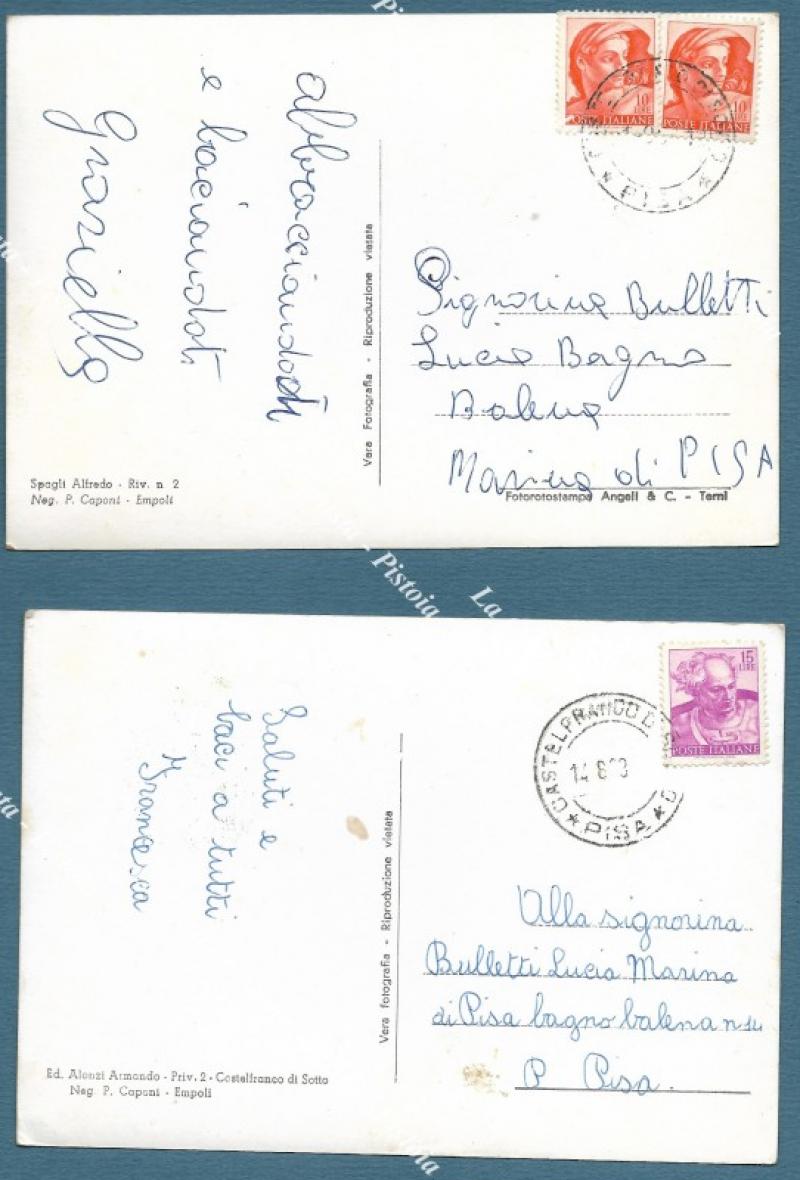 abbracciandoti
e baciandoti
Graziella
10
LIRE
POSTE ITALIANE
10
LIRE
POSTE ITALIANE
PISA
Vera Fotografia - Riproduzione vietata
Signorina Bulletti
Lucia Bagno
Balena
Marina di PISA
Spagli Alfredo - Riv. n. 2
Neg. P. Caponi - Empoli
Fotorotostampa Angeli & C. - Terni
Pistoia
La
Saluti e
baci a tutti
Francesca
15
LIRE
POSTE ITALIANE
14 8
PISA
Vera fotografia - Riproduzione vietata
Alla signorina
Bulletti Lucia Marina
di Pisa bagno balena n 14
P Pisa.
Ed. Alonzi Armando - Priv. 2 - Castelfranco di Sotto
Neg. P. Caponi - Empoli